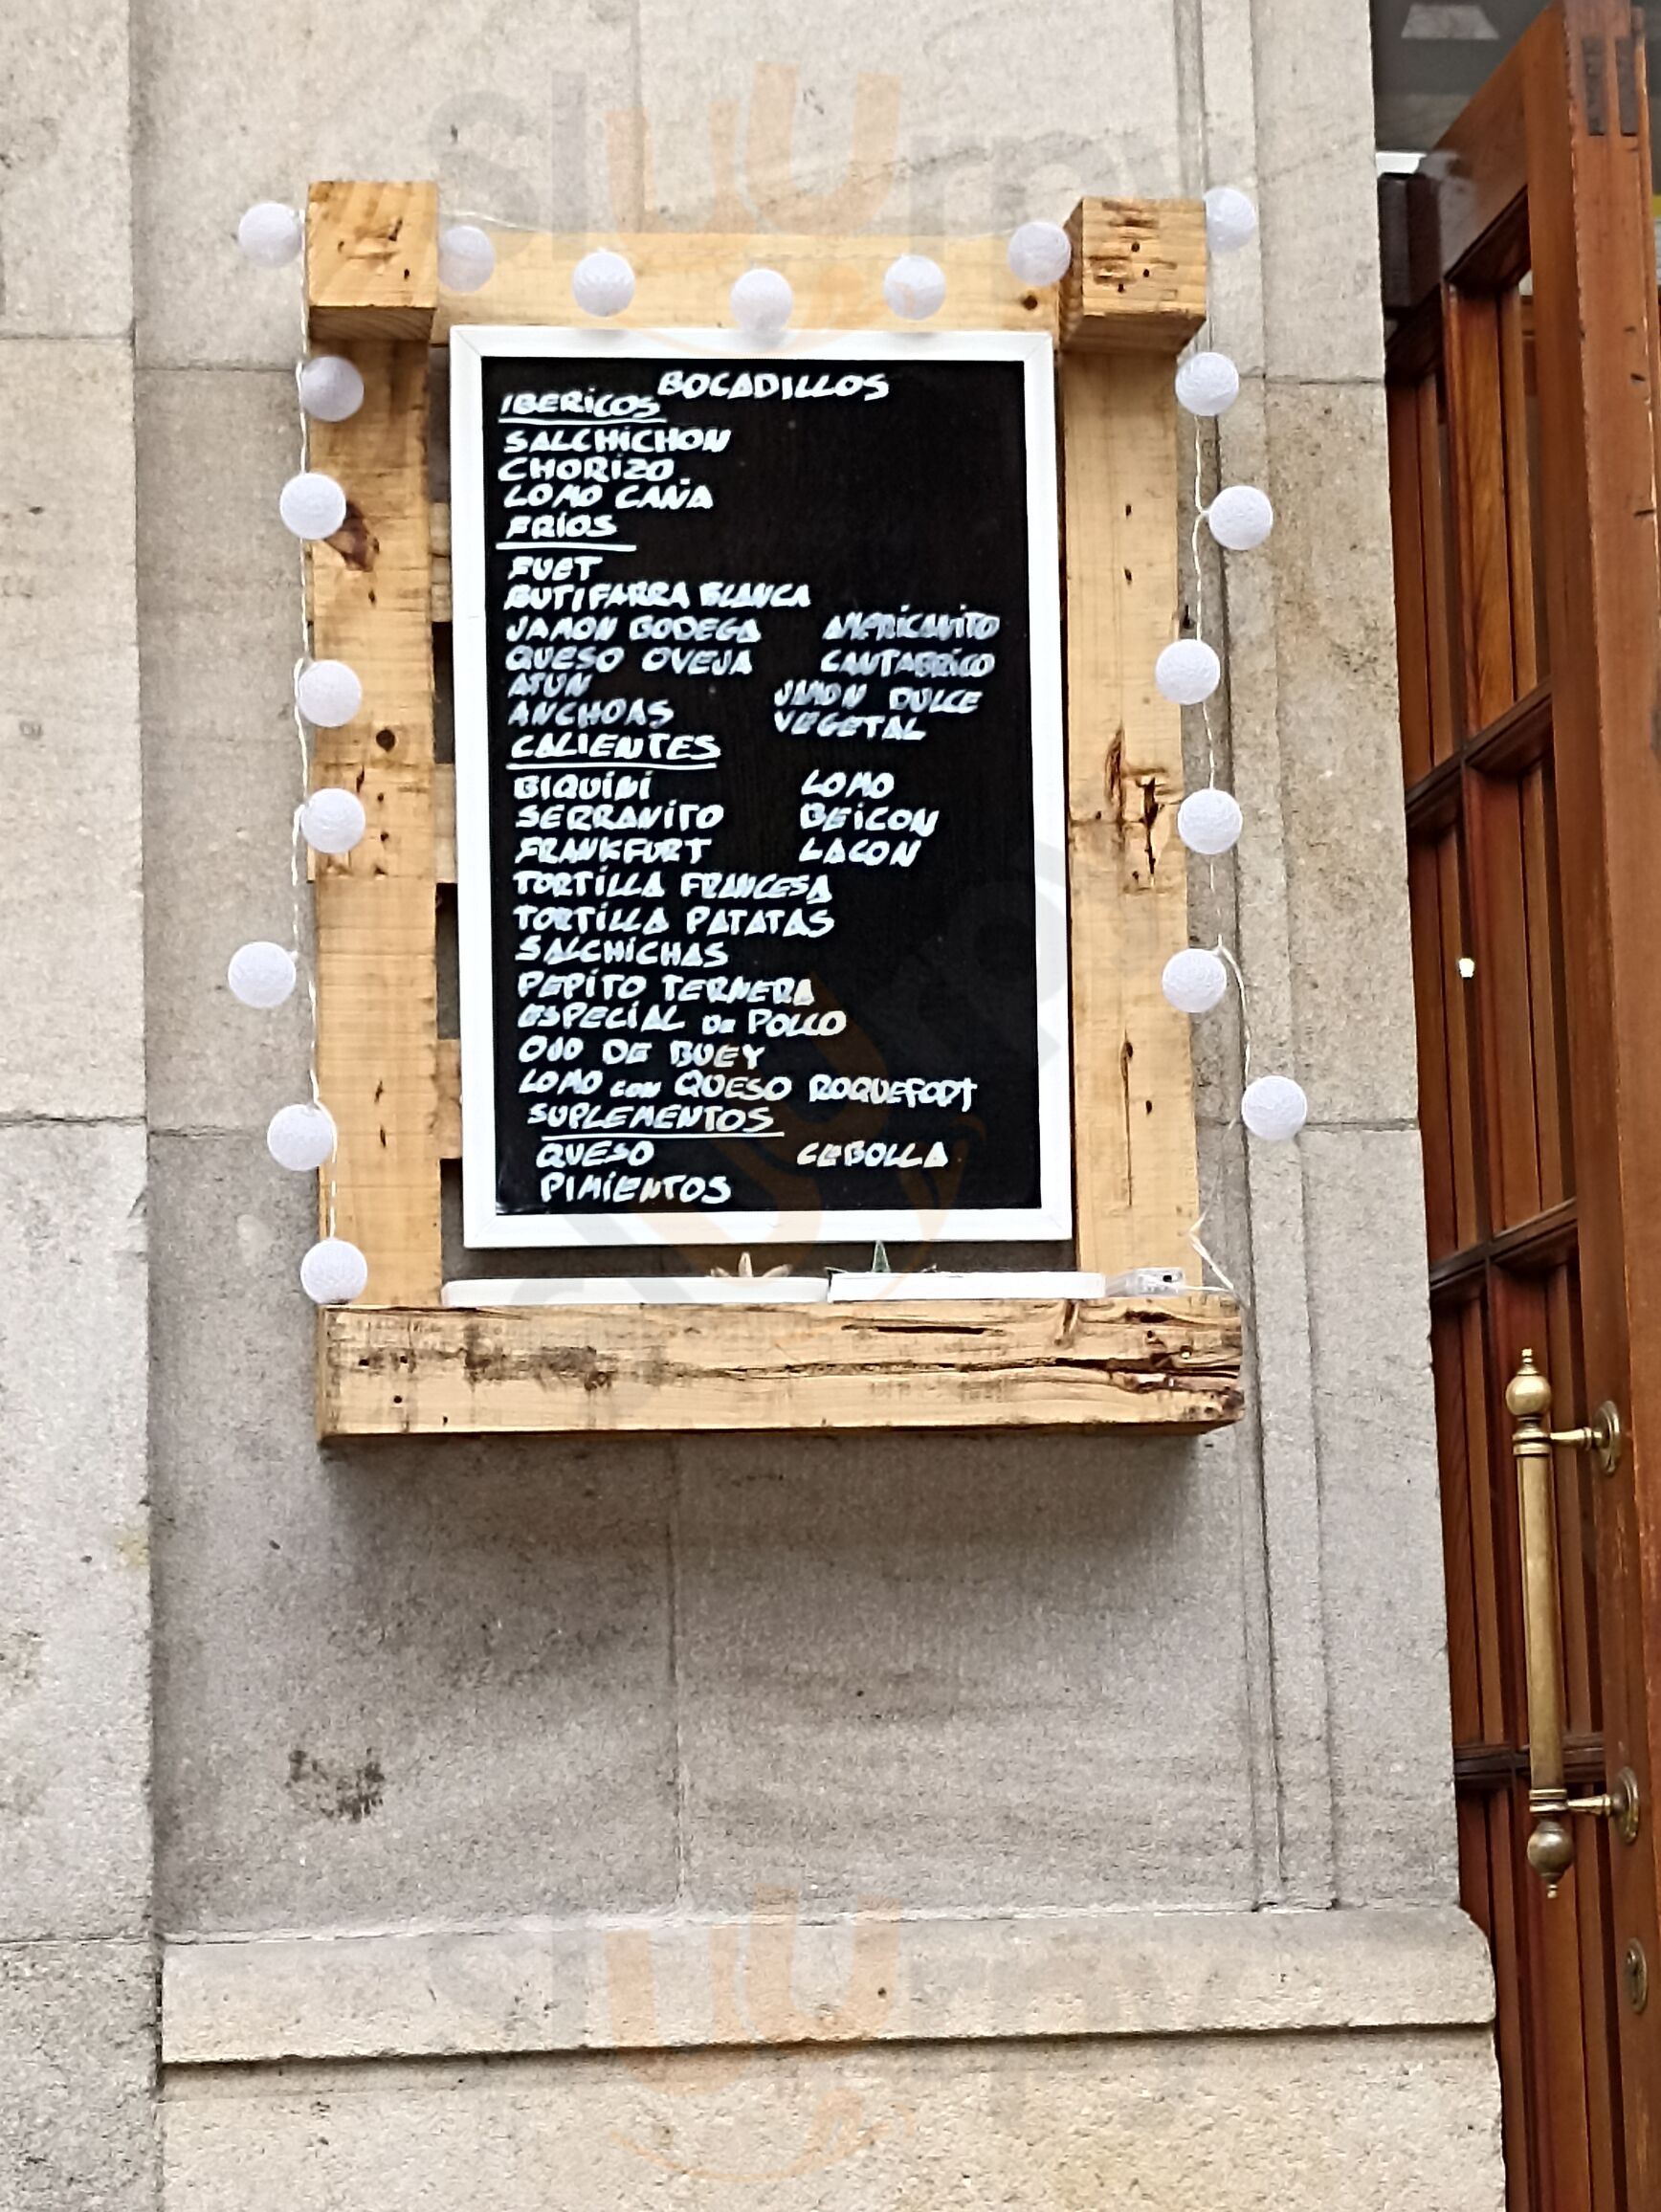 BOCADILLOS
IBERICOS
SALCHICHON
CHORIZO
LOMO CAÑA
FRIOS
FUET
BUTIFARRA BLANCA
JAMON BODEGA AMERICANITO
QUESO OVEJA CANTABRICO
ATUN JAMON DULCE
ANCHOAS VEGETAL
CALIENTES
BIQUINI LOMO
SERRANITO BEICON
FRANKFURT LACON
TORTILLA FRANCESA
TORTILLA PATATAS
SALCHICHAS
PEPITO TERNERA
ESPECIAL De POLLO
OJO DE BUEY
LOMO con QUESO ROQUEFORT
SUPLEMENTOS
QUESO CEBOLLA
PIMIENTOS
sluurpy
sluurpy
sluurpy